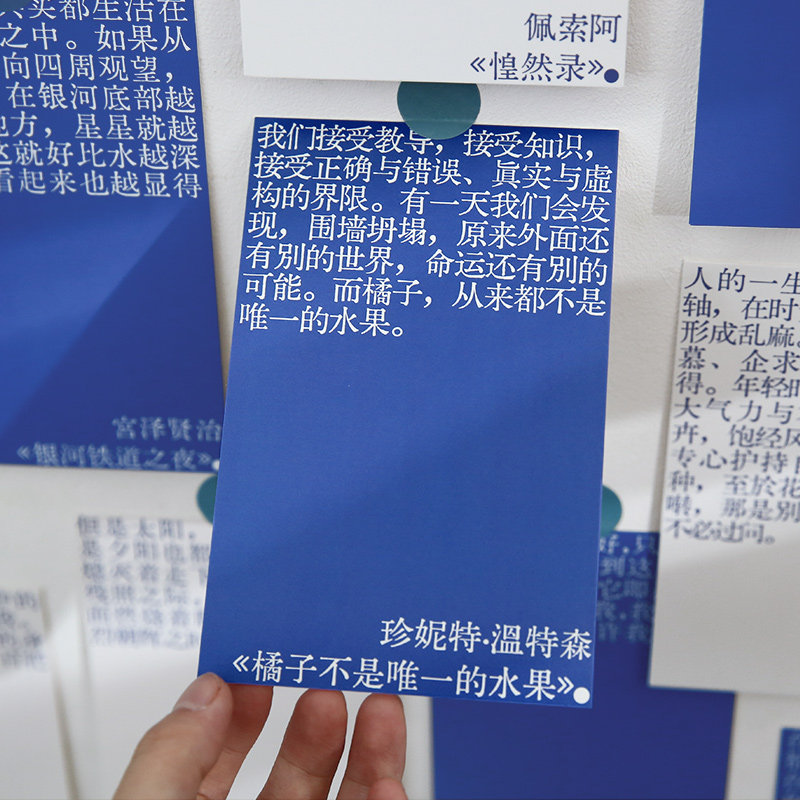 佩索阿
《惶然录》
只实都生活在
之中。如果从
向四周观望，
在银河底部越
地方，星星就越
这就好比水越深
看起来也越显得
宫泽贤治
《银河铁道之夜》
我们接受教导，接受知识，
接受正确与错误、真实与虚
构的界限。有一天我们会发
现，围墙坍塌，原来外面还
有别的世界，命运还有别的
可能。而橘子，从来都不是
唯一的水果。
珍妮特·温特森
《橘子不是唯一的水果》
人的一生
轴，在时
形成乱麻。
慕、企求
得。年轻时
大气力与
卉，饱经风
专心护持自
种，至於花
啭，那是别
不必过问。
但是太阳，
是夕阳也都